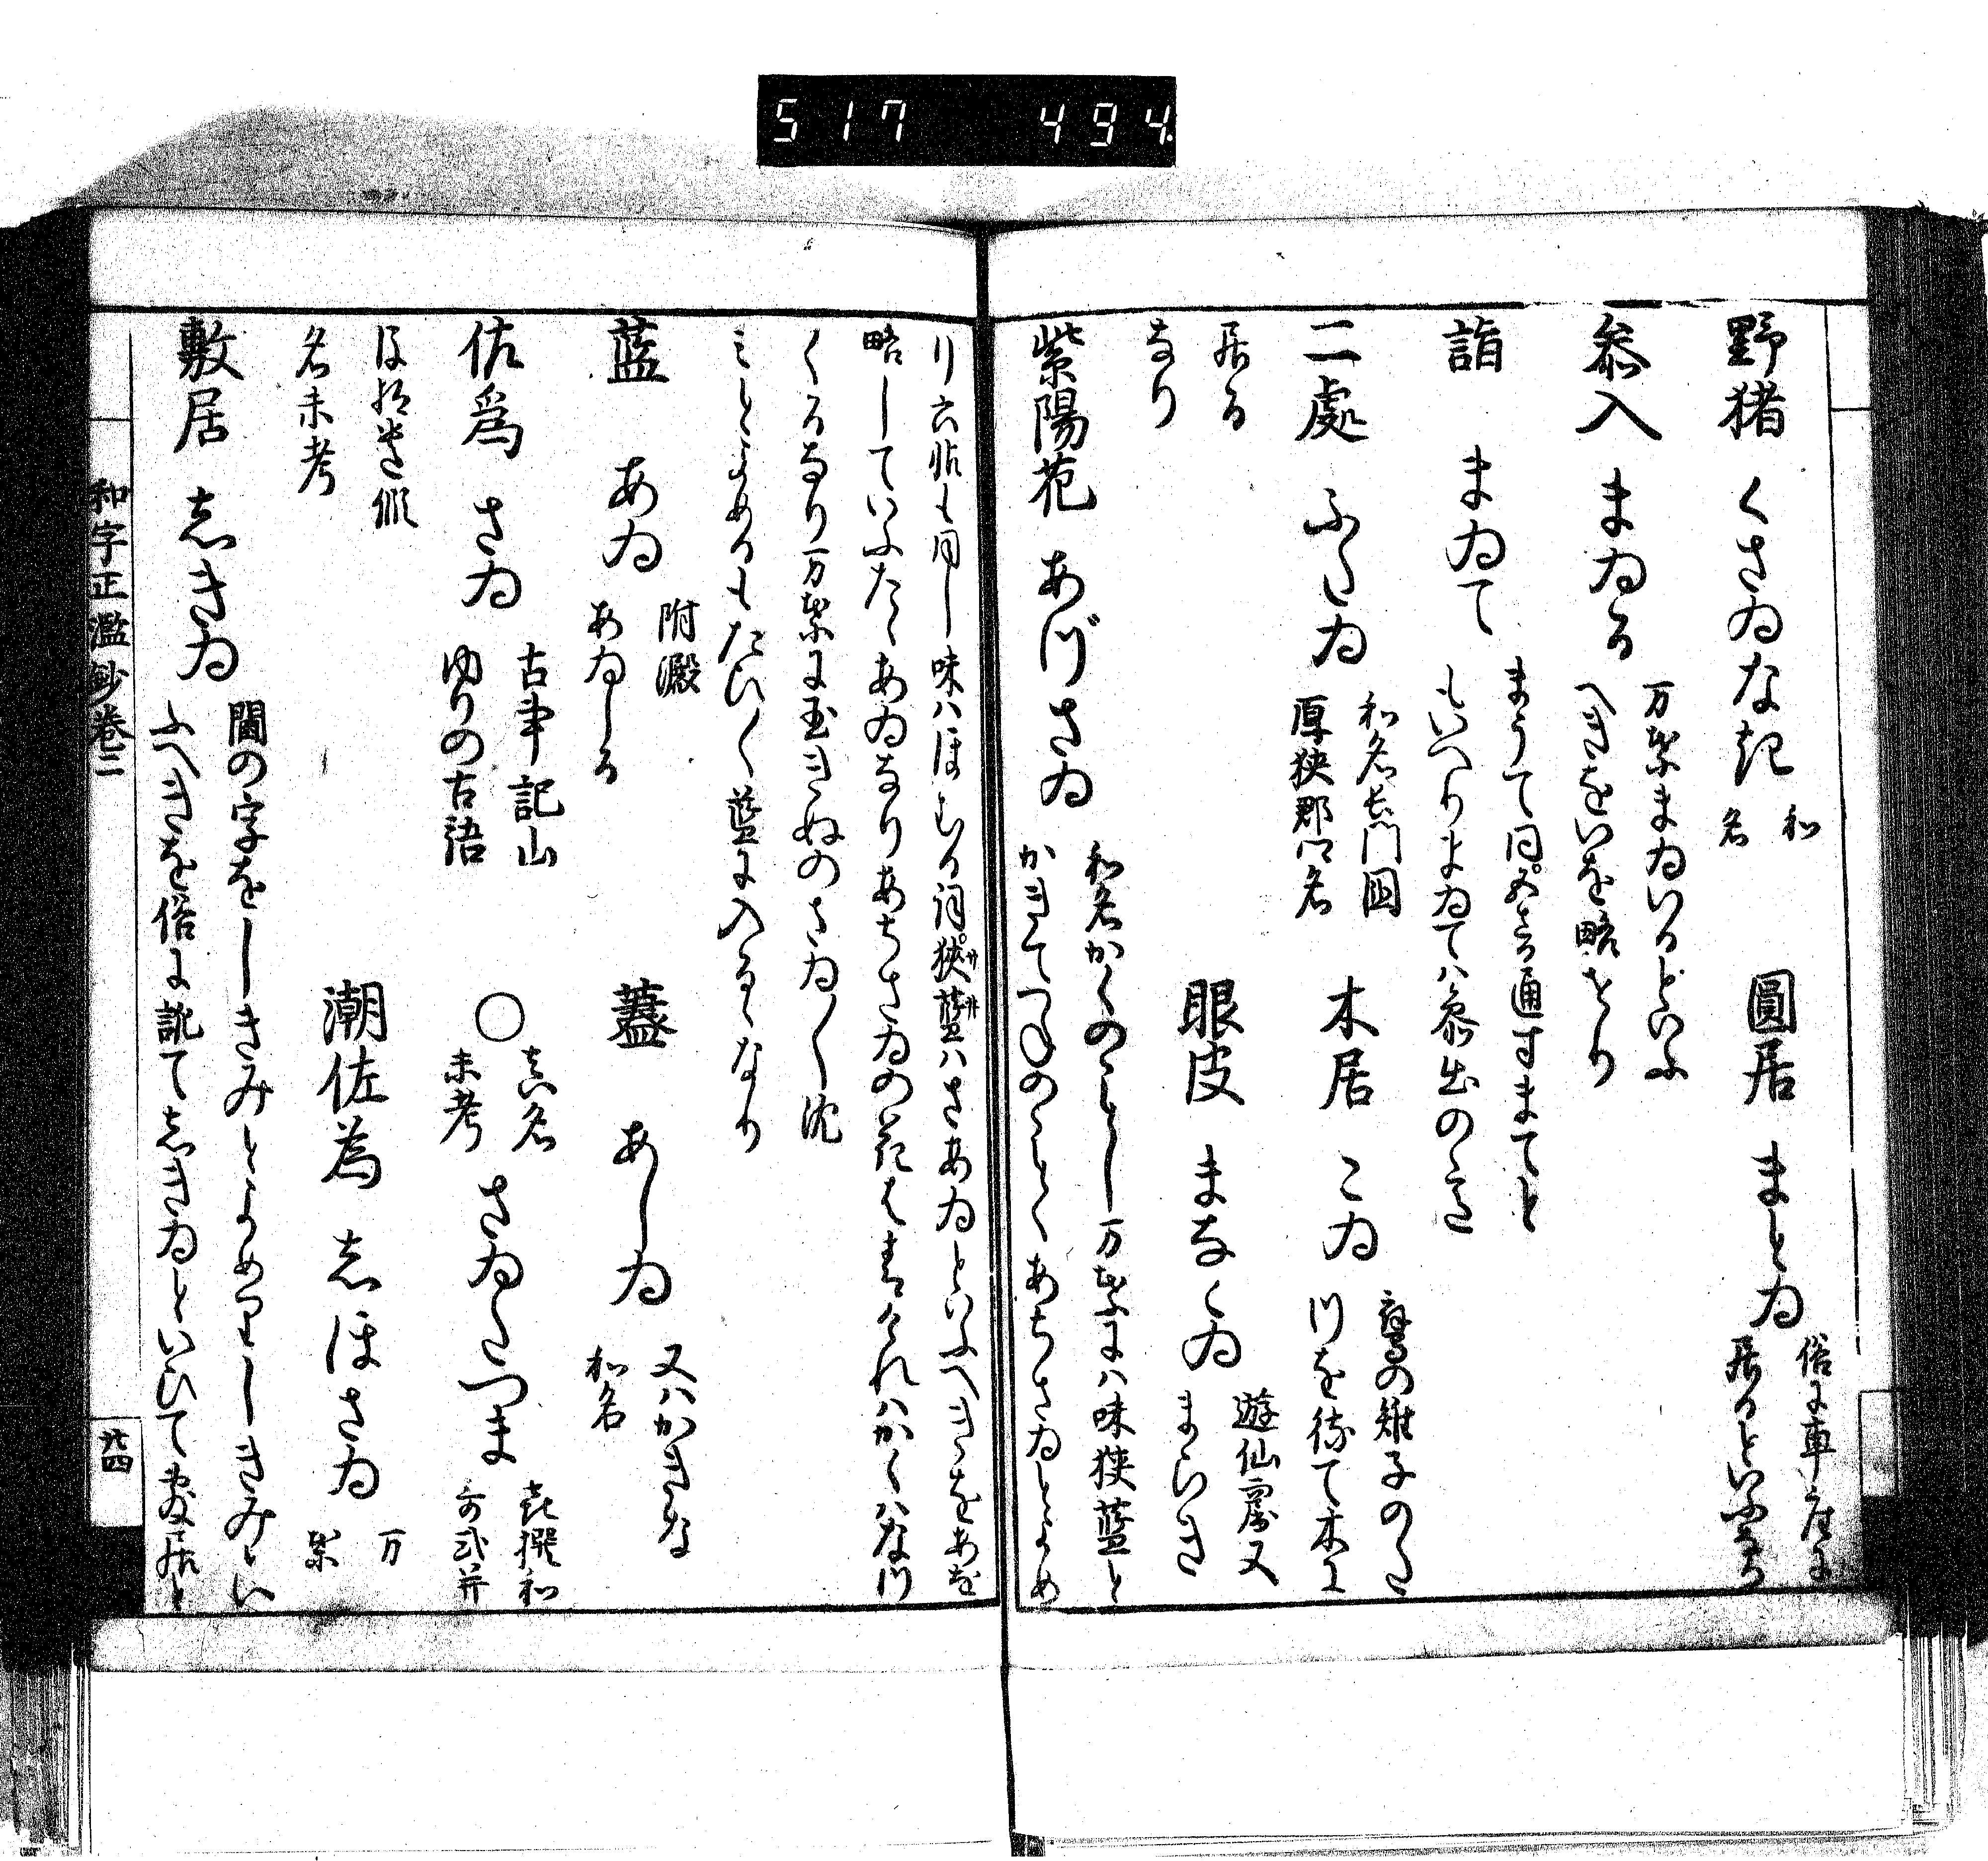 517 494.
野猪 くさゐなき 和名
圓居 まとゐ 俗に車座に
居るといふ
参入 まゐる 万葉まゐいるといふ
へきをいを略せり
詣 まゐて まうて同 五音通すまてと
もいへりまゐては参出の心
二處 ふたゐ 和名長門國
厚狭郡郷名
木居 こゐ 鷹の雉子の
りを待て木に
居る
なり
眼皮 まなゝゐ 遊仙窟又
まひき
紫陽花 あづさゐ 和名かくのことし万葉には味狭藍と
かきてつねのことくあちさゐとよめ
り六帖も同し味はほむる詞狭藍はさあゐといふへきをあを
略していふたゝあゐなりあちさゐの花は青けれはかくはな
くるなり万葉に玉きぬのさゐ〳〵沈
みとよめるもたひ〳〵藍に入るゝなり
藍 あゐ 附澱
あゐしる
藎 あしゐ 又はかきな
和名
佐為 さゐ 古事記山
ゆりの古語
○ 真名
未考 さゐたつま 喜撰和
哥式并
後拾遺
名未考
潮佐為 しほさゐ 万
葉
敷居 しきゐ 閫の字をしきみとよめりしきみとい
ふへきを俗に訛てしきゐといひて敷居と
和字正濫鈔巻二
廿四